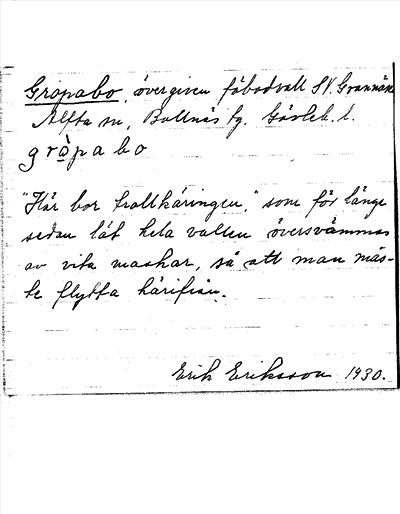 Gropabo, övergiven fäbodvall SV. Grannäs
Alfta sn, Bollnäs fg. Gävleb. l.
gròpabo
"Här bor trollkäringen," som för länge
sedan lät hela vallen översvämmas
av vita maskar, så att man mås-
te flytta härifrån.
Erik Eriksson 1930.